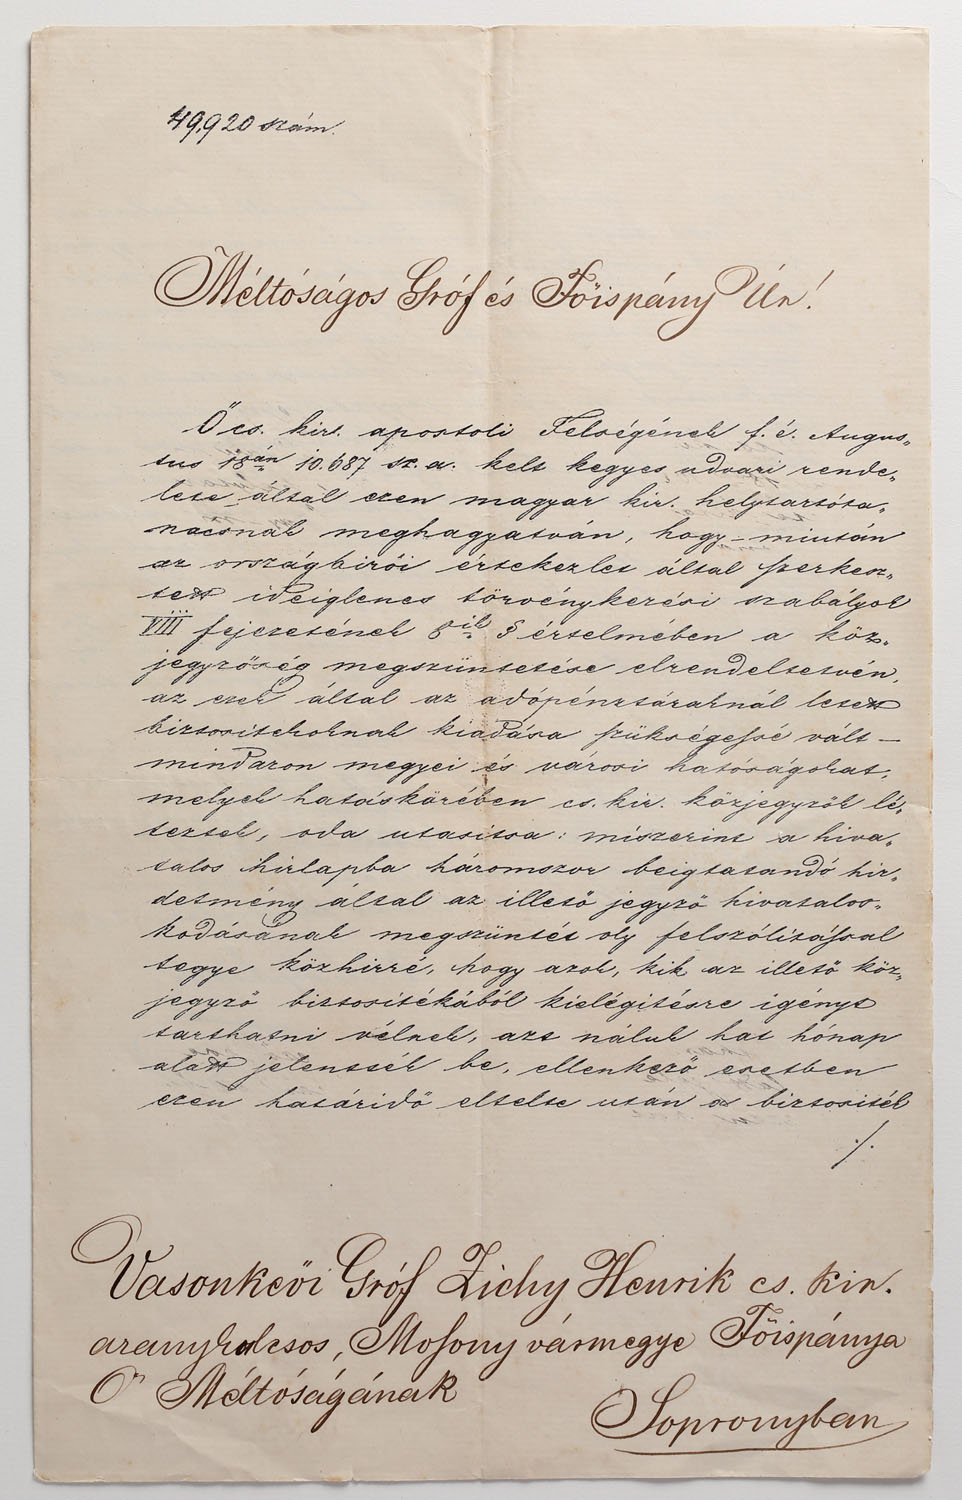 49,920 szám.
Méltóságos Gróf és Főispány Úr!
Ő cs. kir. apostoli Felségének f. é. Augus„
tus 18án 10.687 sz. a. kelt kegyes udvari rende„
lete által ezen magyar kir. helytartóta„
nácsnak meghagyatván, hogy – miután
az országbirói értekezlet által szerkesz„
tett ideiglenes törvénykezési szabályok
VIII fejezetének 8ik § értelmében a köz„
jegyzőség megszüntetése elrendeltetvén,
az ezek által az adópénztáraknál letett
biztositékoknak kiadása szükségessé vált –
mindazon megyei és városi hatóságokat,
melyek hatáskörében cs. kir. közjegyzők lé„
teztek, oda utasitsa: miszerint a hiva„
talos hirlapba háromszor beigtatandó hir„
detmény által az illető jegyző hivatalos„
kodásának megszüntét oly felszólitással
tegye közhirré, hogy azok, kik az illető köz„
jegyző biztositékából kielégitésre igényt
tarthatni vélnek, azt náluk hat hónap
alatt jelentsék be, ellenkező esetben
ezen határidő eltelte után a biztositék
./.
Vasonkeöi Gróf Zichy Henrik cs. kir.
aranykulcsos, Mosony vármegye Főispánya
Ő Méltóságának
Sopronyban